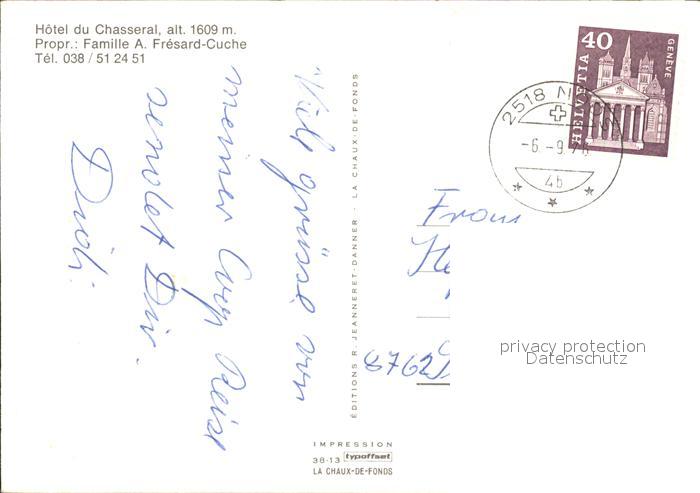 Hôtel du Chasseral, alt. 1609 m.
Propr.: Famille A. Frésard-Cuche
Tél. 038 / 51 24 51
Viele grüsse von
meiner Reise
sendet Dir
EDITIONS R. JEANNERET-DANNER - LA CHAUX-DE-FONDS
40
HELVETIA
GENÈVE
2518 N
-6.-9.7
4b
Frau
He
8762
privacy protection
Datenschutz
IMPRESSION
38-13 typoffset
LA CHAUX-DE-FONDS